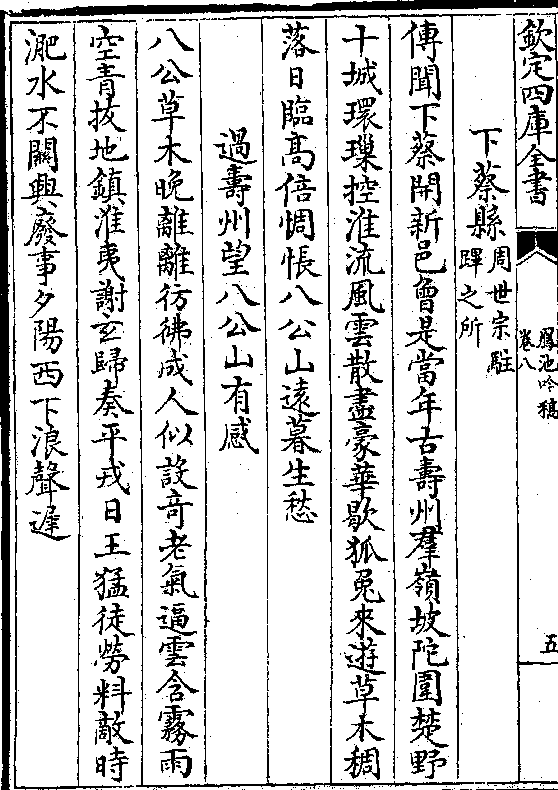 欽定四庫全書
鳳池吟稿
卷八
五
下蔡縣周世宗駐
蹕之所
傳聞下蔡開新邑曾是當年古壽州羣嶺坡陀圍楚野
十城環瓅控淮流風雲散盡豪華歇狐兎來遊草木稠
落日臨髙倍惆悵八公山遠暮生愁
過壽州望八公山有感
八公草木晚離離彷彿成人似設竒老氣逼雲含霧雨
空青拔地鎮淮夷謝玄歸奏平戎日王猛徒勞料敵時
淝水不關興廢事夕陽西下浪聲遲